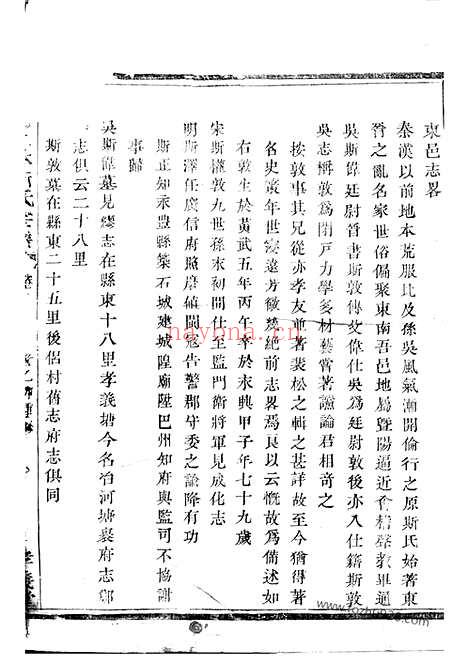 東邑志畧
秦漢以前地本荒服比及孫吳風氣漸開倫行之原斯氏始著東
晉之亂名家世俗偏聚東南吾邑地屬暨陽逼近會稽聲教畢通
吳斯偉廷尉晉書斯敦傳父偉仕吳為廷尉敦後亦入仕籍斯敦
吳志稱敦為閉戶力學多材藝嘗著讜論君相奇之
按敦事其兄從亦孝友並著裴松之輯之甚詳故至今猶得著
名史策年世寖遠芳徽幾絕前志畧焉良以云慨故為備述如
右敦生於黃武五年丙午卒於永興甲子年七十九歲
宋斯權敦九世孫末初間仕至監門衛將軍見成化志
明斯澤任廣信府經歷閩寇告警郡守委之諭降有功
斯正知永豐縣築石城建城隍廟陞巴州知府與監司不協謝
事歸
吳斯偉墓見繆志在縣東十八里孝義塘今名冶河塘裘府志鄒
志俱云二十八里
斯敦墓在縣東二十五里後侶村舊志府志俱同
氏宗譜